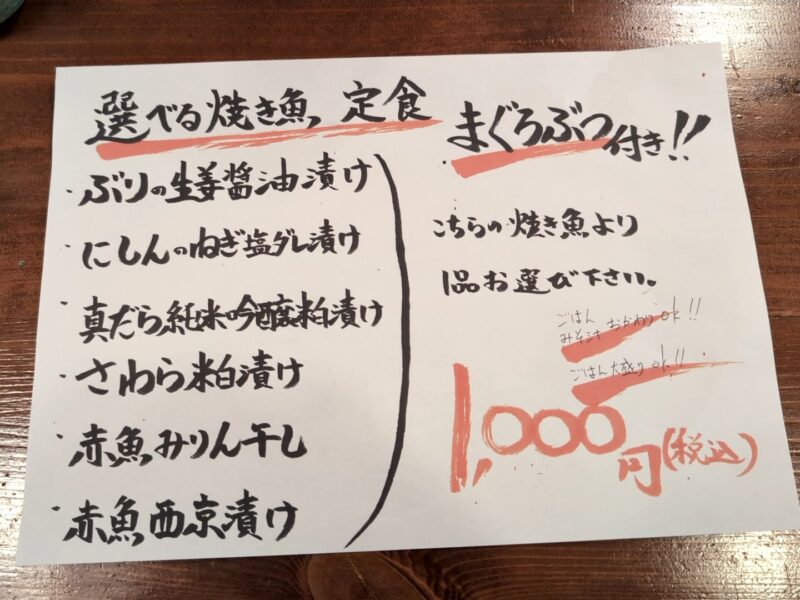 選べる焼き魚定食
・ぶりの生姜醤油漬け
・にしんのねぎ塩ダレ漬け
・真だら純米吟醸粕漬け
・さわら粕漬け
・赤魚みりん干し
・赤魚西京漬け
まぐろぶつ付き!!
こちらの焼き魚より
1品お選び下さい。
ごはん
みそ汁 おかわりok!!
ごはん大盛りok!!
1,000円(税込)